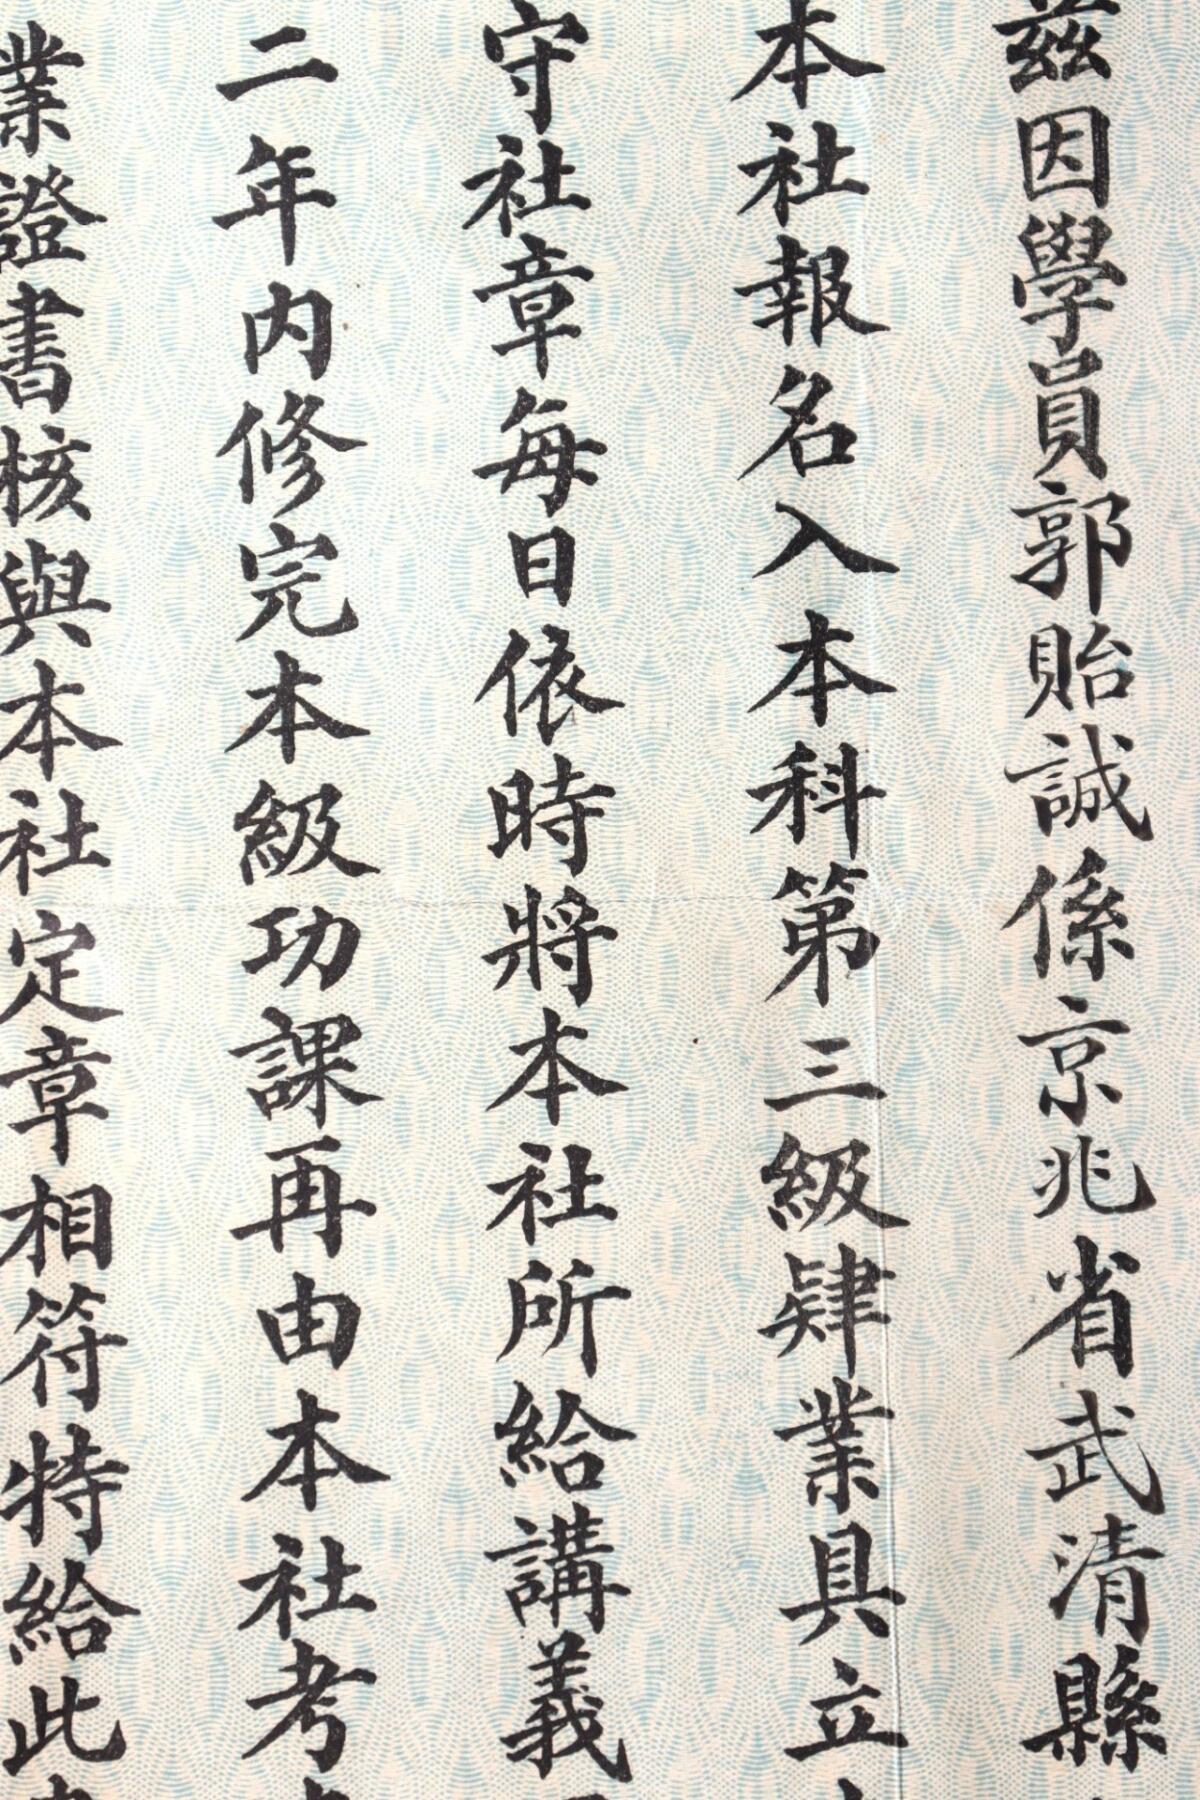 茲因學員郭貽誠係京兆省武清縣
本社報名入本科第三級肄業具立
守社章每日依時將本社所給講義
二年内修完本級功課再由本社考
業證書核與本社定章相符特給此